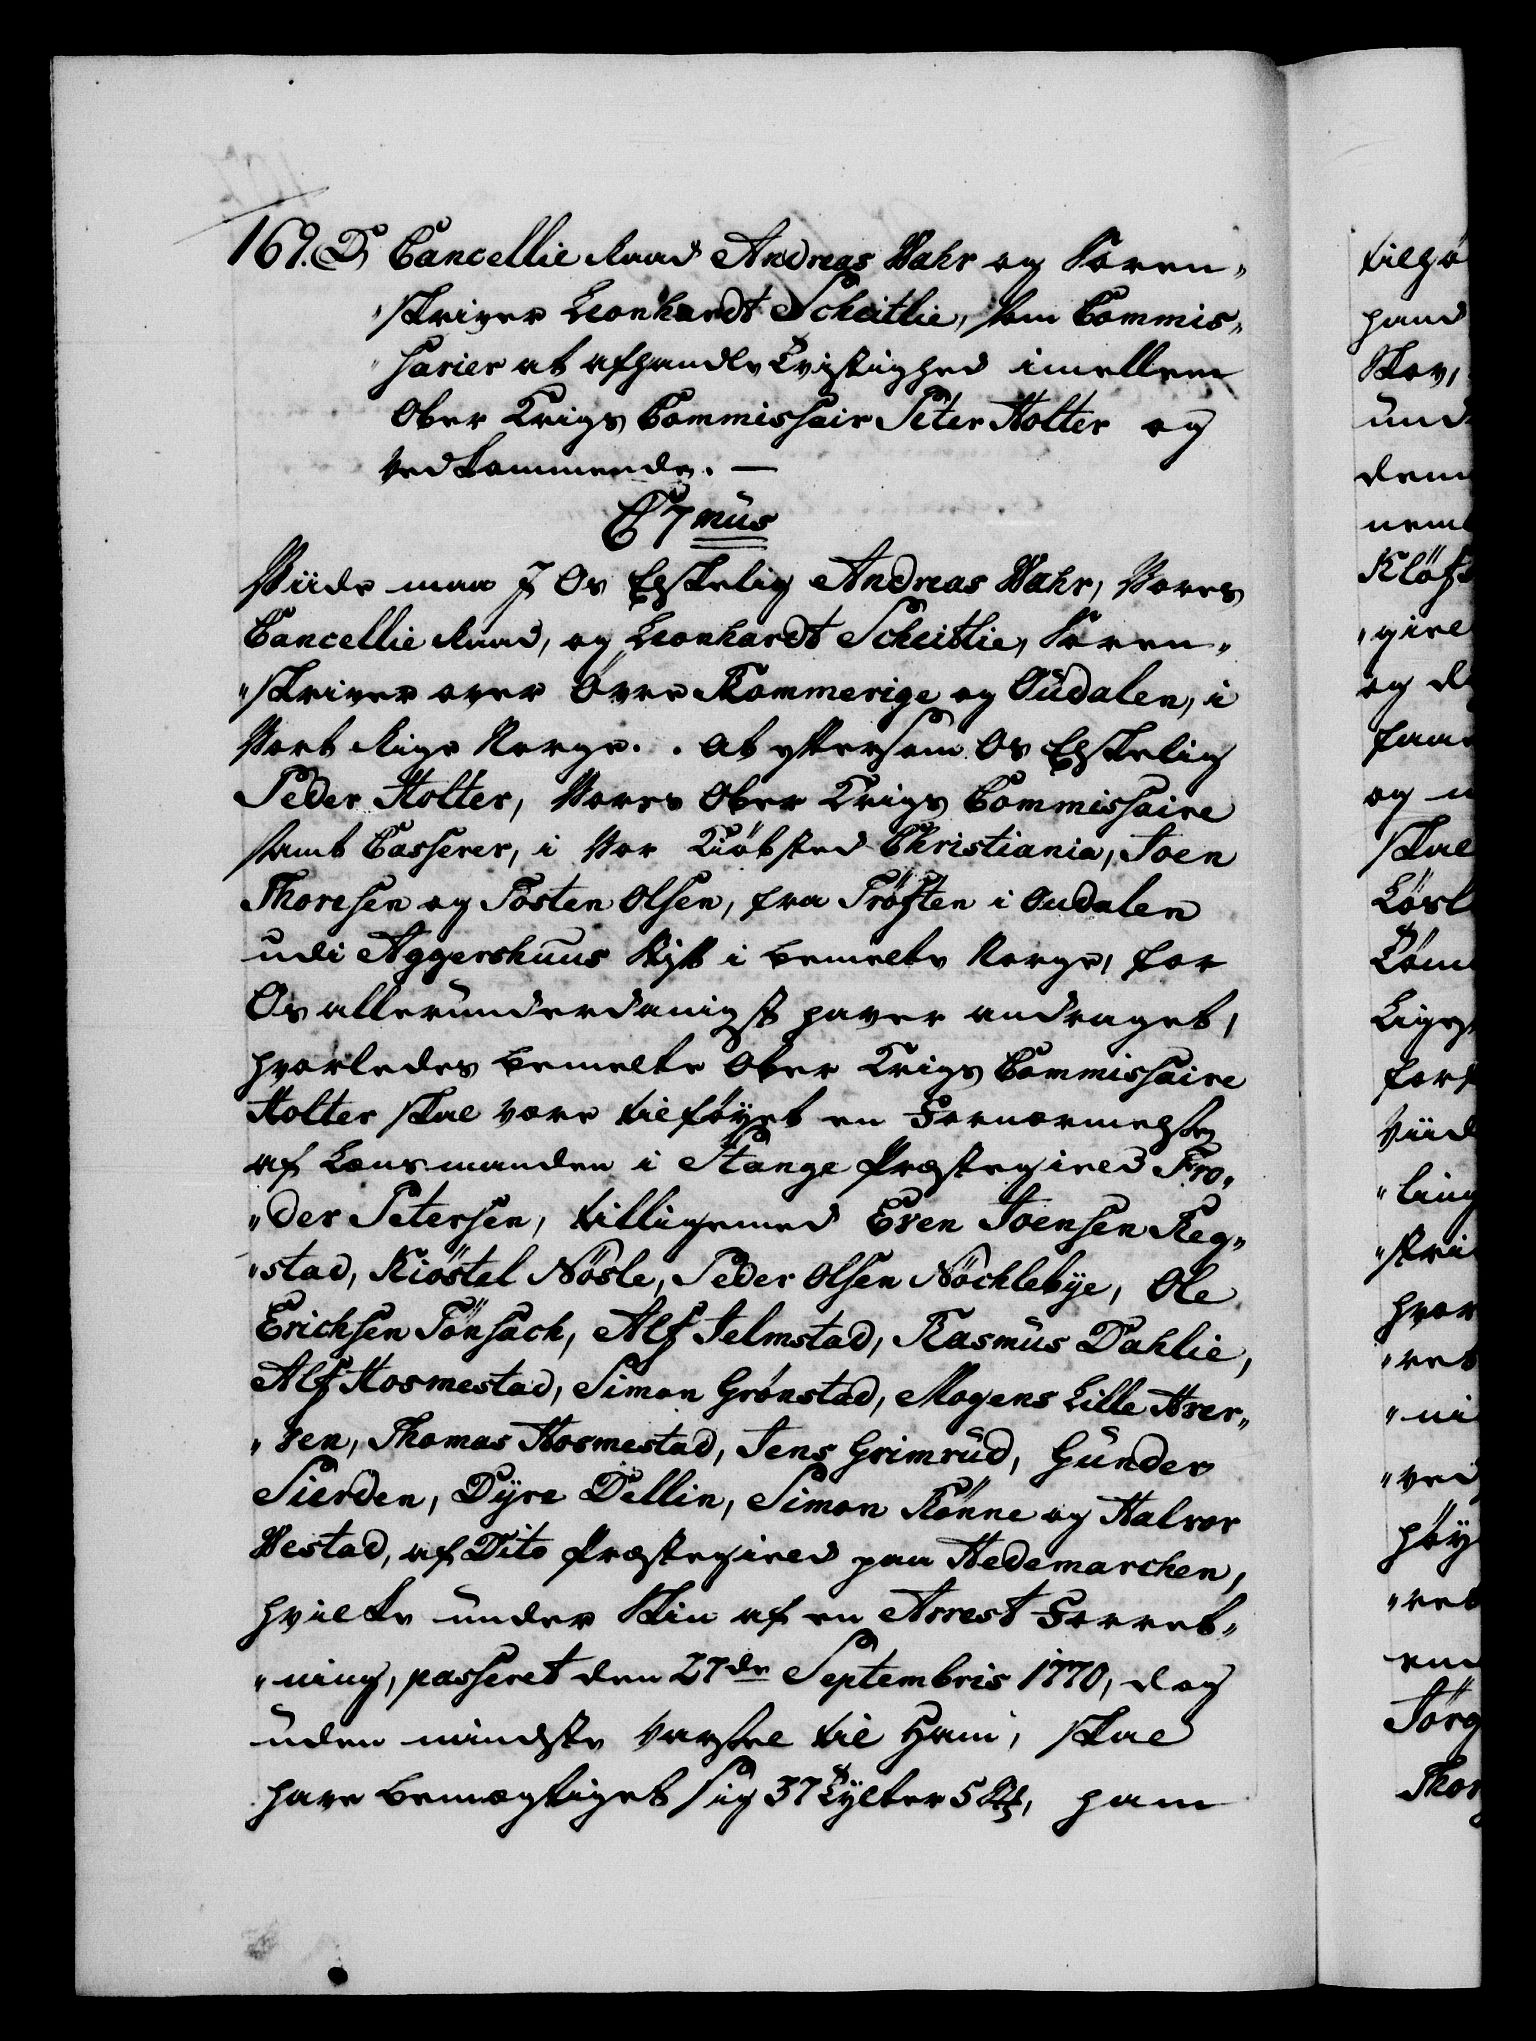 169. D. Cancellie Raad Andreas Wahr og Soren„
„skriver Leonhardt Scheitlie, som Commis„
„sarier at afhandle Tvistighed imellem
Ober Krigs Commissair Peter Holter og
vedkommende. —
C7mus
Viide maa I Os Elskelig Andreas Wahr, Vores
Cancellie Raad, og Leonhardt Scheitlie, Soren„
„skriver over Øvre Rommerige og Oudalen, i
Vort Rige Norge. . At eftersom Os Elskelig
Peder Holter, Vores Ober Krigs Commissaire
samt Casserer, i Vor Kiöbsted Christiania, Joen
Thoresen og Tosten Olsen, fra Tröften i Oudalen
udi Aggershuus Stift i bemelte Norge, for
Os allerunderdanigst haver andraget,
hvorledes bemelte Ober Krigs Commissaire
Holter skal være tilföyet en Fornærmelse
af Lensmanden i Stange Præstegield Fro„
„der Petersen, tilligemed Even Joensen Reg„
„stad, Kiöstel Nösle, Peder Olsen Nöchlebye, Ole
Erichsen Tönsach, Alf Jelmstad, Rasmus Dahlie,
Alf Hosmestad, Simon Grønstad, Mogens Lille Hver„
„ven, Thomas Hosmestad, Jens Grimrud, Gunder
Sierden, Dyre Dellin, Simon Rönne og Halvor
Westad, af Dito Præstegield paa Hedemarchen,
hvilke under Skin af en Arrest Forret„
„ning, passeret den 27de Septembris 1770, dog
uden mindste Varsel til Ham, skal
have bemægtiget sig 37 Tylter 5 St, ham
tilhö
hand
Skov,
und
dem
nem
Klöft
„giel
og d
faa
og
skal
Lösl
Töm
Lige
fors
Viid
„ling
„skri
hvor
„ret
„ni
„ved
höy
„ret
em
Jörg
Thor